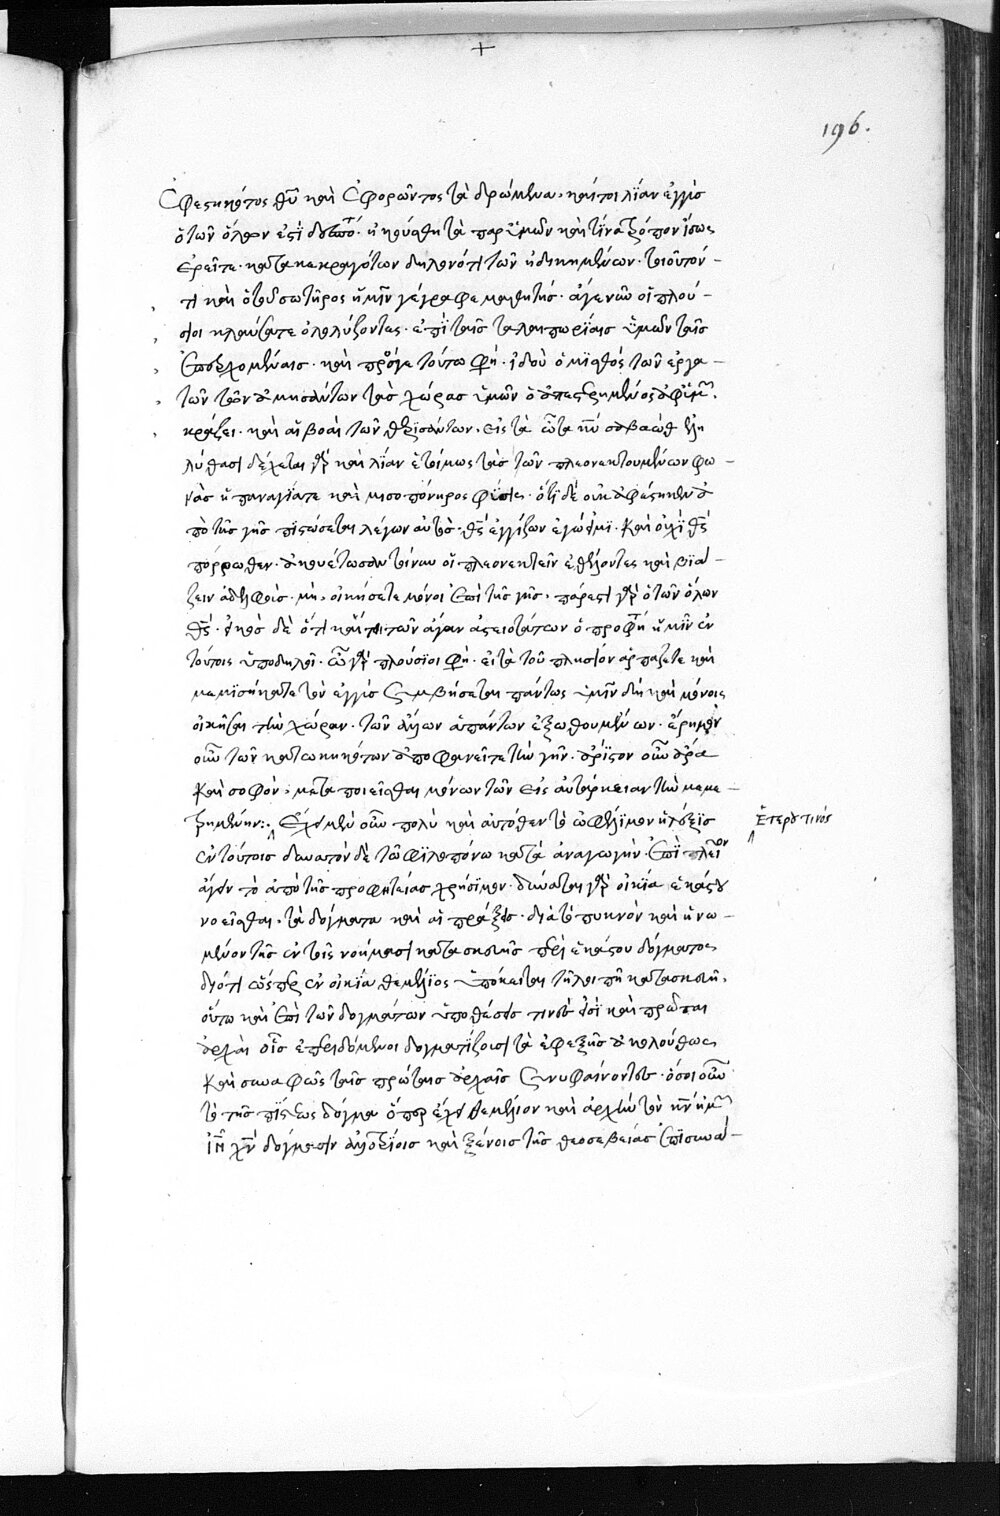 196.
Ἐφεστηκότος θῦ καὶ ἐφορῶντος τὰ δρώμενα, καίτοι λίαν ἐγγὺς
ὁ τῶν ὅλων ἐστὶ ἠκούσθη τὰ παρ' ὑμῶν καὶ τίνα τρόπον ἴσως
ἐρεῖτε. κατακεκραγότων δηλονότι τῶν ἠδικημένων. τοιοῦτόν
τι καὶ ὁ τοῦ σωτῆρος ἡμῖν γέγραφε μαθητής. ἄγε νῦν οἱ πλού-
σιοι κλαύσατε ὀλολύζοντες. ἐπὶ ταῖς ταλαιπωρίαις ὑμῶν ταῖς
ἐπερχομέναις. καὶ πρός γε τούτω φη. ἰδοὺ ὁ μισθὸς τῶν ἐργα-
τῶν τῶν ἀμησάντων τὰς χώρας ὑμῶν ὁ ἀπεστερημένος ἀφ' ὑμ
κράζει. καὶ αἱ βοαὶ τῶν θερισάντων, εἰς τὰ ὦτα κυ σαβαὼθ εἰσελη
λύθασι δέχεται γὰρ καὶ λίαν ἑτοίμως τὰς τῶν πλεονεκτουμένων φω-
νὰς ἡ παναγία τε καὶ μισοπόνηρος φύσις. ὅτι δὲ οὐκ ἀφέστηκεν ἀ
πὸ τῆς γῆς πιστώσεται λέγων αὐτός. θς ἐγγίζων ἐγώ εἰμι. καὶ οὐχὶ θς
πόρρωθεν. ἀκουέτωσαν τοίνυν οἱ πλεονεκτεῖν ἐθέλοντες καὶ βιά-
ζειν ἀδελφούς. μὴ, οἰκήσετε μόνοι ἐπὶ τῆς γῆς, πάρεστι γὰρ ὁ τῶν ὅλων
θς. εἰκὸς δὲ ὅτι καί τι τῶν ἄγαν ἀστειοτάτων ὁ προφή ἡμῖν ἐν
τούτοις ὑποδηλοῖ. ὦ γὰρ πλούσιοι φη. εἰ τὰ τοῦ πλησίον ἁρπάζετε καὶ
μεμισήκατε τὸν ἐγγὺς συμβήσεται πάντως ὑμῖν δὴ καὶ μόνοις
οἰκῆσαι τὴν χώραν. τῶν ἄλλων ἁπάντων ἐξωθουμένων. ἔρημον
οὖν τῶν κατωκηκότων ἀποφανεῖτε τὴν γῆν. ἄριστον οὖν ἄρα
καὶ σοφὸν, μεταποιεῖσθαι μόνων τῶν εἰς αὐτάρκειαν τὴν μεμε-
τρημένην:. Ἔχει μὲν οὖν πολὺ καὶ αὐτόθεν τὸ ὠφέλιμον ἡ λέξις
Ἑτέρου τινός
ἐν τούτοις δυνατὸν δὲ τῶ φιλοπόνω κατὰ ἀναγωγὴν. ἐπὶ πλεῖον
ἄγειν τὸ ἀπὸ τῆς προφητείας χρήσιμον. δύναται γὰρ οἰκία ἑκάστου
νοεῖσθαι, τὰ δόγματα καὶ αἱ πράξεις. διὰ τὸ πυκνὸν καὶ ἡνω-
μένον τῆς ἐν τοῖς νοήμασι κατασκευῆς περὶ ἑκάστου δόγματος
διότι ὥσπερ ἐν οἰκία θεμέλιος ὑπόκειται τῆ λοιπῆ κατασκευῆ.
οὕτω καὶ ἐπὶ τῶν δογμάτων ὑποθέσεις τινές εἰσι καὶ πρῶται
ἀρχαὶ οἷς ἐπερειδόμενοι δογματίζουσι τὰ ἐφεξῆς ἀκολούθως
καὶ συναφῶς ταῖς πρώταις ἀρχαῖς συνυφαίνοντες. ὅσοι οὖν
τὸ τῆς πίστεως δόγμα ὅπερ ἔχει θεμέλιον καὶ ἀρχὴν τὸν κν ἡμ
ιν χν δόγμασιν ἀλλοτρίοις καὶ ξένοις τῆς θεοσεβείας ἐπισυνά-